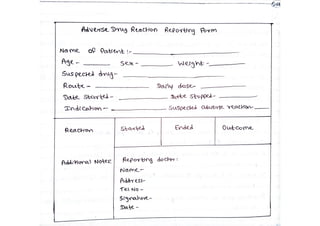 Adverse Drug Reaction Reporting Form
Name of Patient :-
Age - Sex - Weight -
Suspected drug -
Route - Daily dose -
Date Started - Date Stopped -
Indication - Suspected adverse reaction -
Reaction Started Ended Outcome
Additional Notes: Reporting doctor :
Name -
Address -
Tel No -
Signature -
Date -